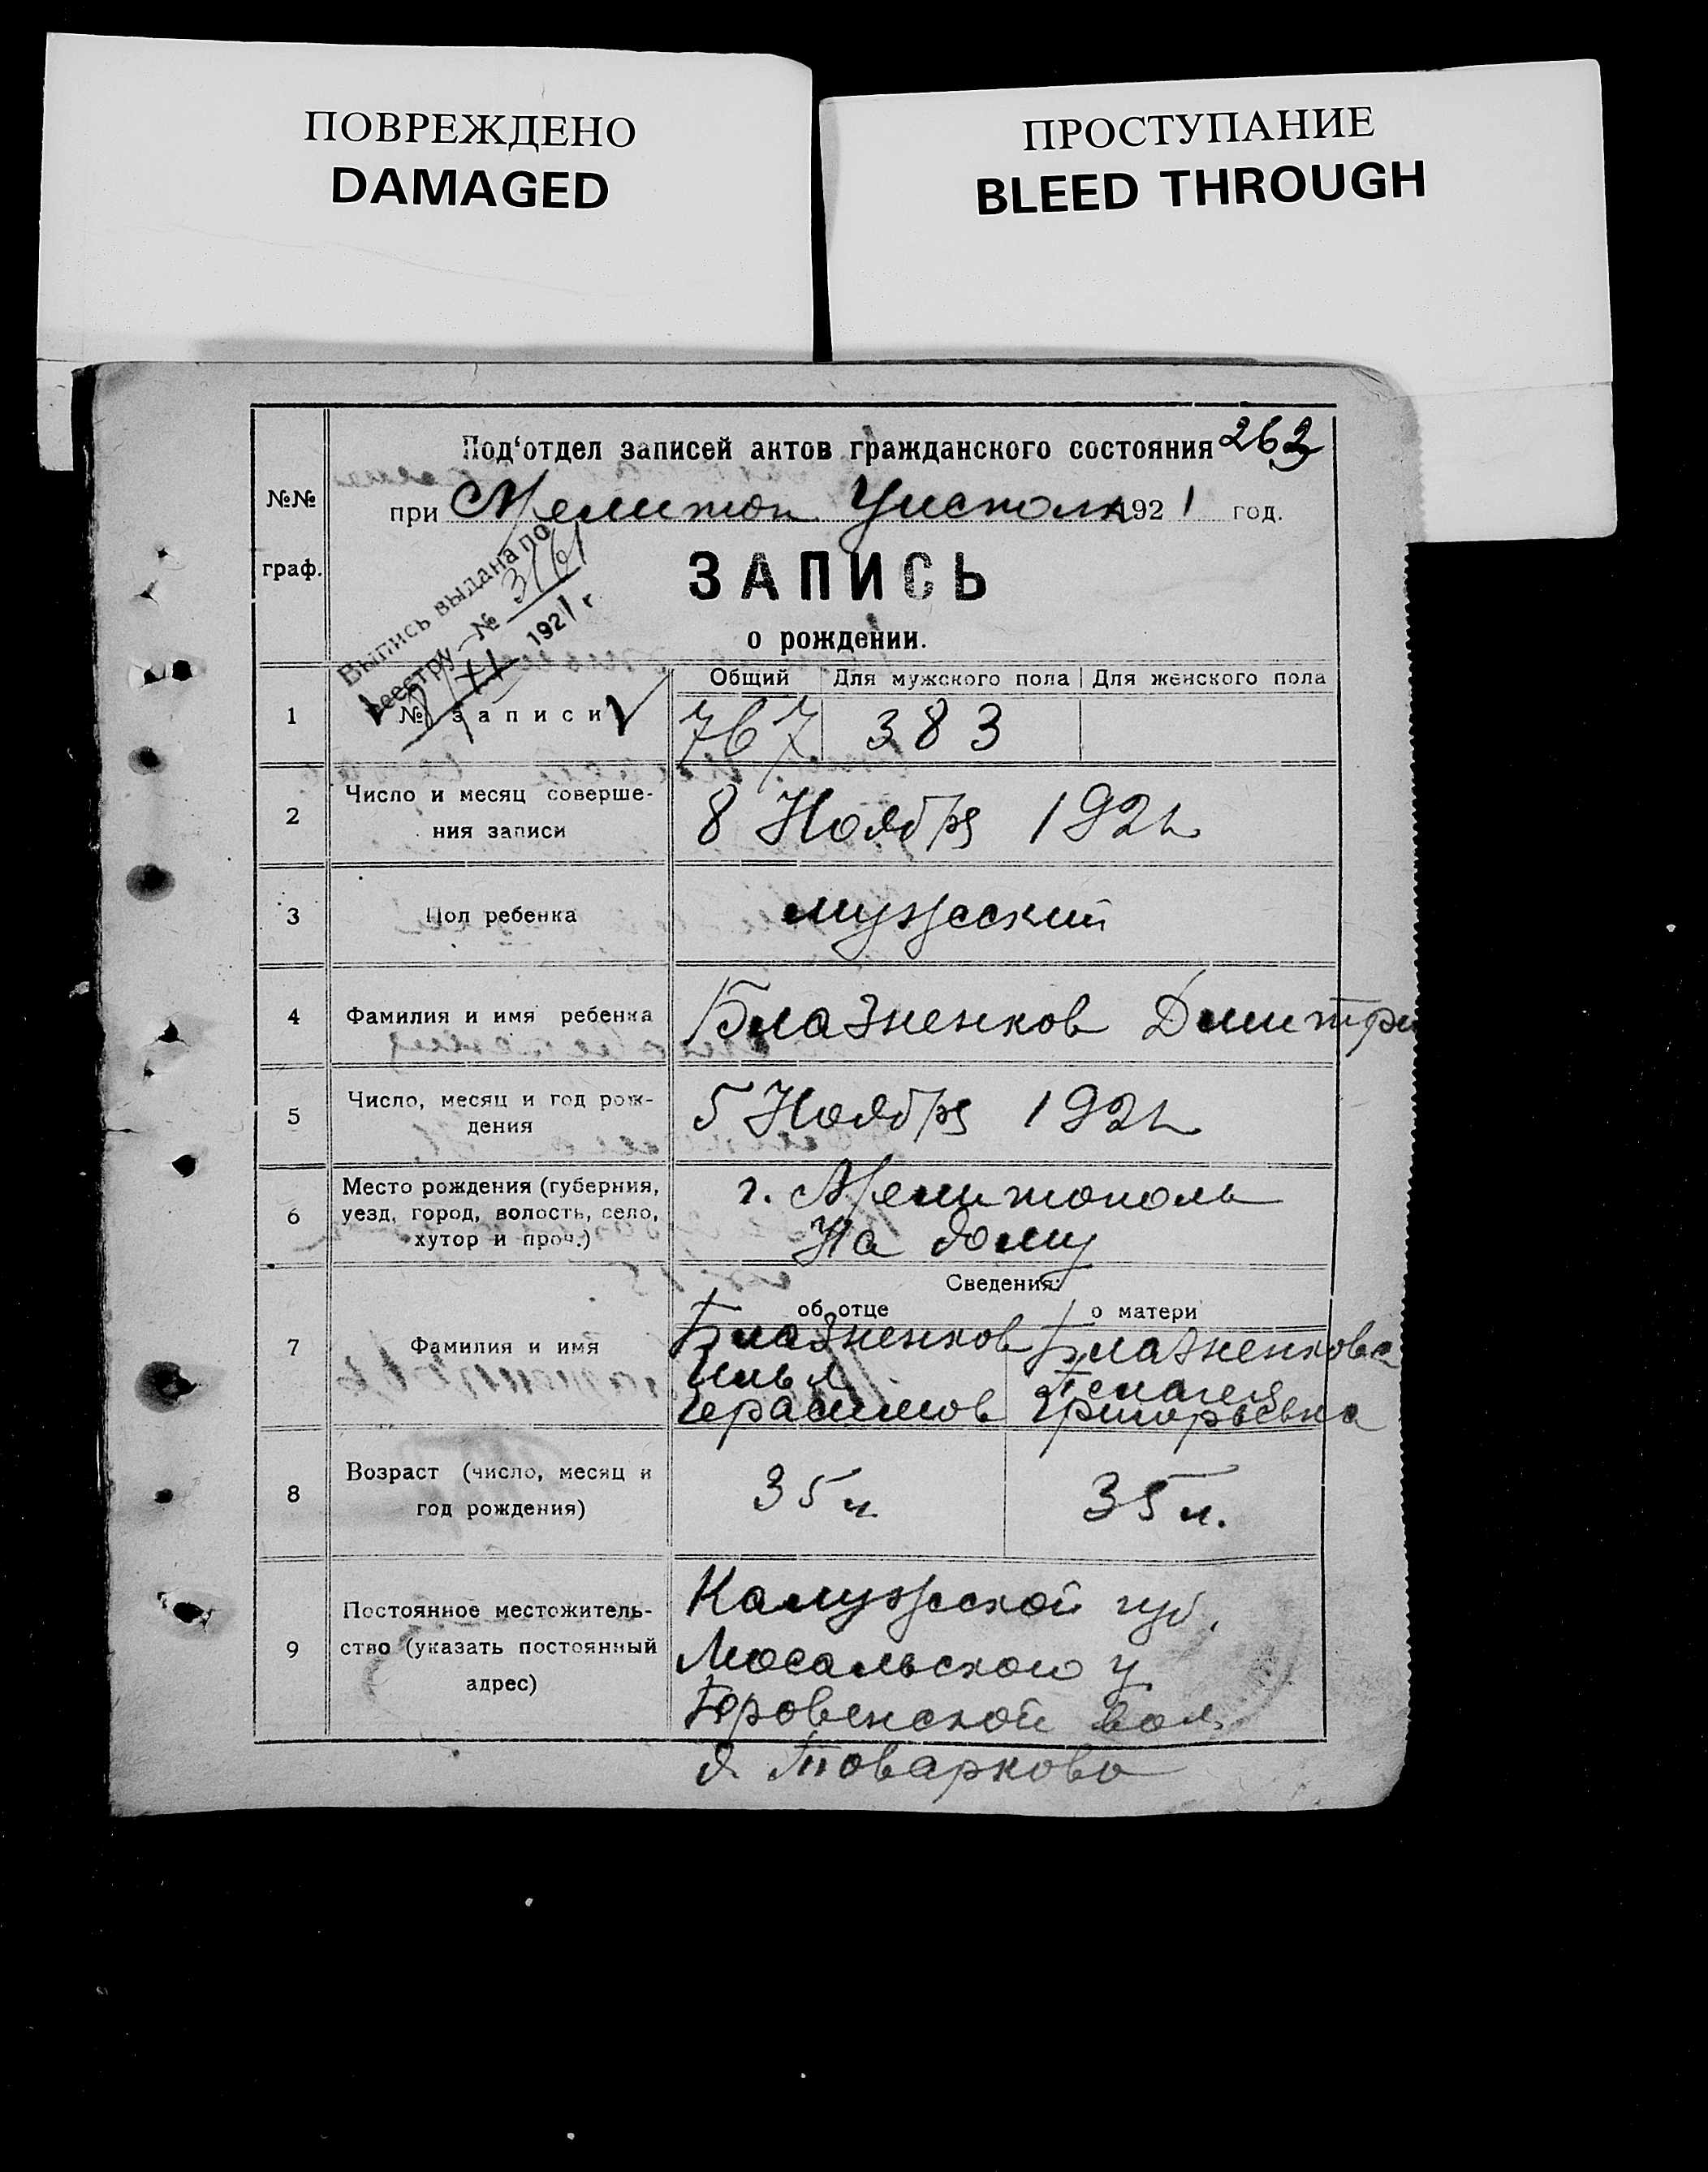 ПОВРЕЖДЕНО
DAMAGED
ПРОСТУПАНИЕ
BLEED THROUGH
Под‘отдел записей актов гражданского состояния 262
№№
граф.
при Мелитоп Уисполк 1921 год.
Выпись выдана по
реестру № 3161
8/XI 1921 г
ЗАПИСЬ
о рождении.
Общий Для мужского пола Для женского пола
1 № записи 767 383
2 Число и месяц соверше-
ния записи
8 Ноября 1921
3 Пол ребенка мужеский
4 Фамилия и имя ребенка Блазненков Димитри
5 Число, месяц и год рож-
дения
5 Ноября 1921
6 Место рождения (губерния,
уезд, город, волость, село,
хутор и проч.)
г. Мелитополь
На дому
Сведения:
об отце о матери
7 Фамилия и имя
Блазненков
Илья
Герасимов
Блазненкова
Пелагея
Григорьевна
8 Возраст (число, месяц и
год рождения)
35 л 35 л.
9 Постоянное местожитель-
ство (указать постоянный
адрес)
Калужеской губ.
Мосальского у
вол
д. Товарково